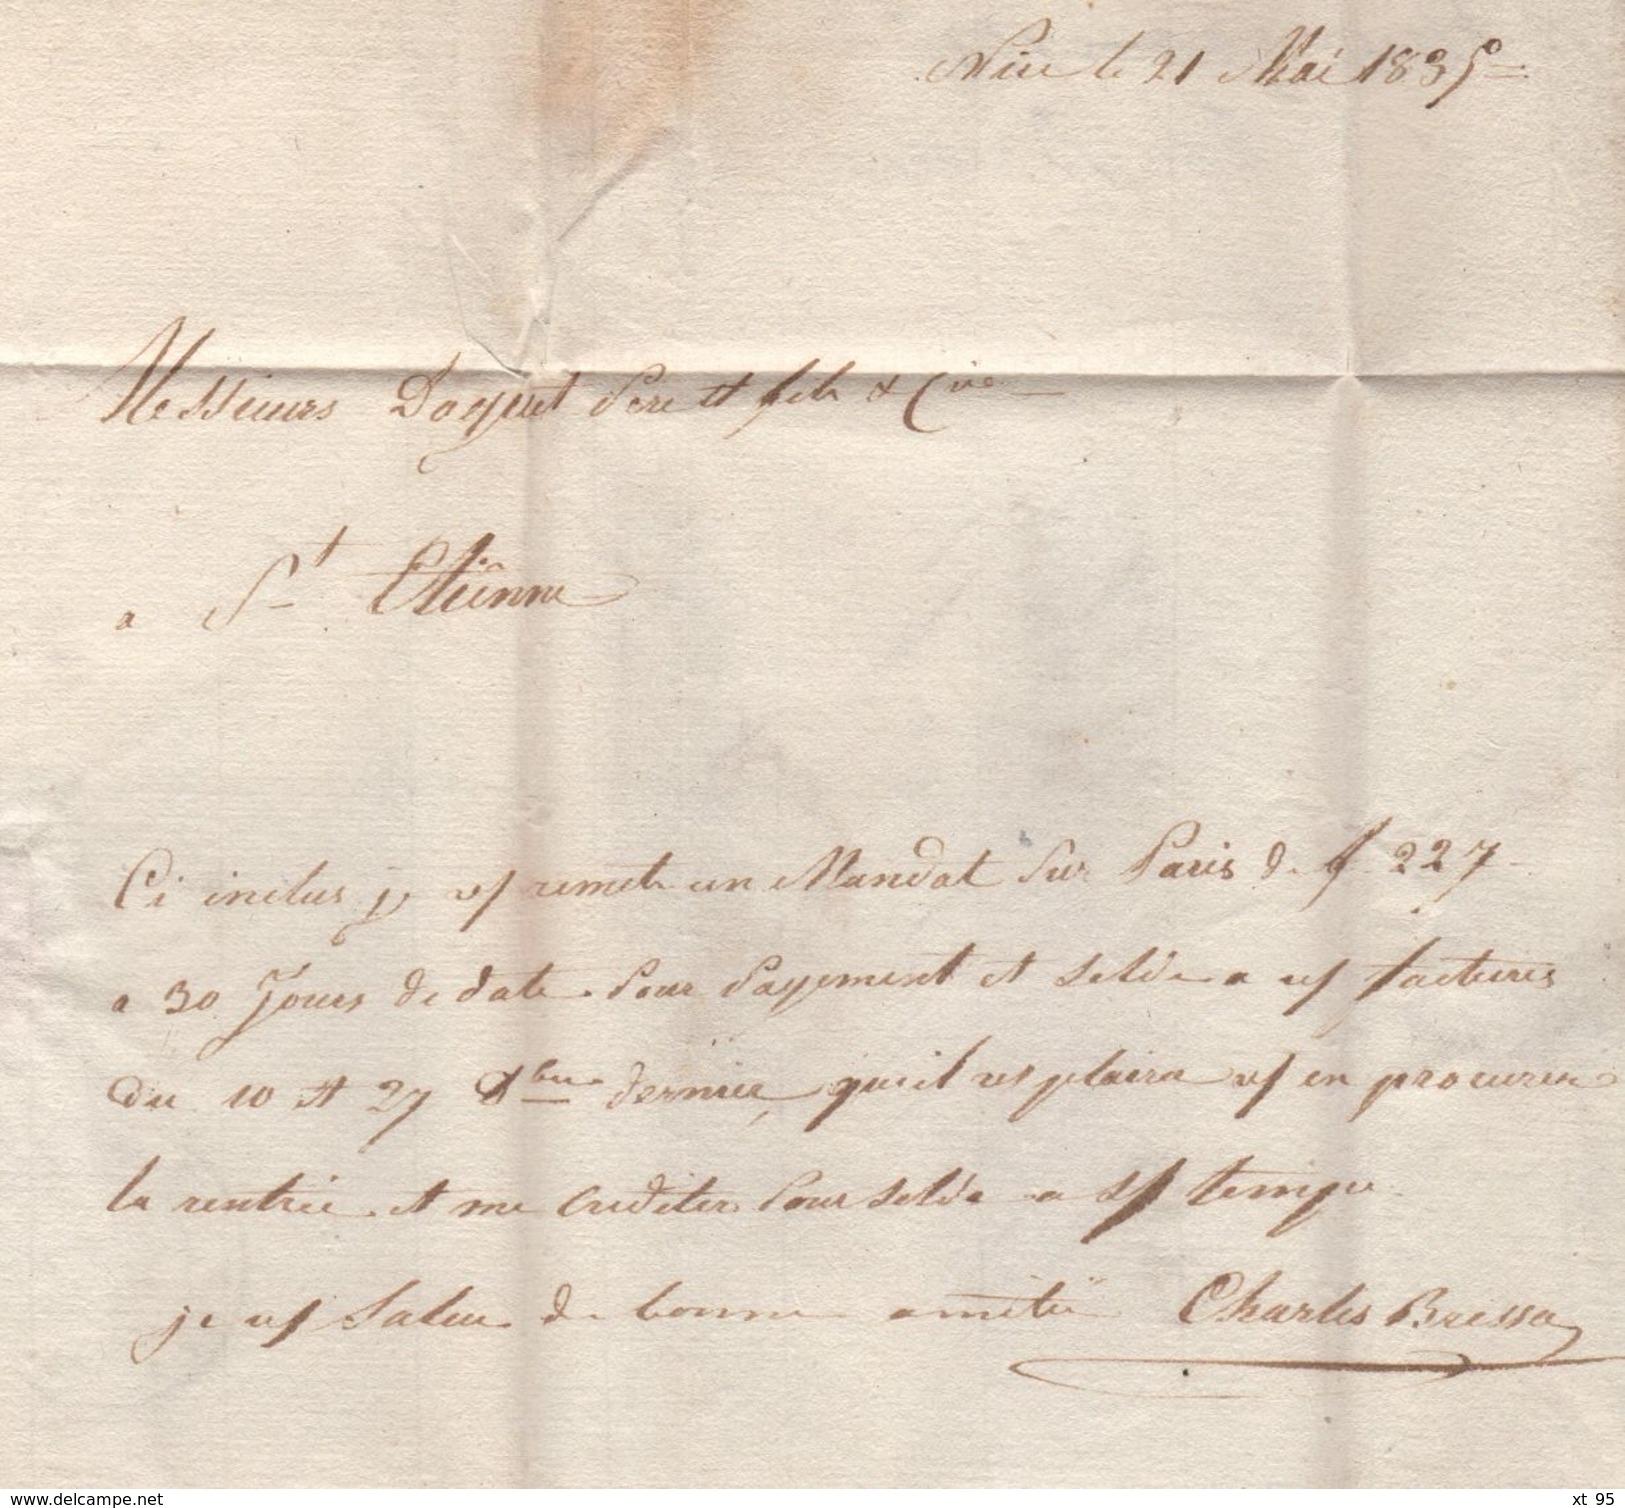 Nice le 21 Mai 1835
Messieurs Doguet Pere et fils & Cie
a St Etiênne
Ci inclus je vs remets un Mandat Sur Paris de f 227
a 30 Jours de date Pour Payement et Solde a vs factures
du 10 et 27 Xbre dernier, qu'il vs plaira vs en procurer
la rentrée et me Crediter Pour Solde a sf temps
je vs Salue de bonne amitié Charles Bressa
www.delcampe.net
xt 95